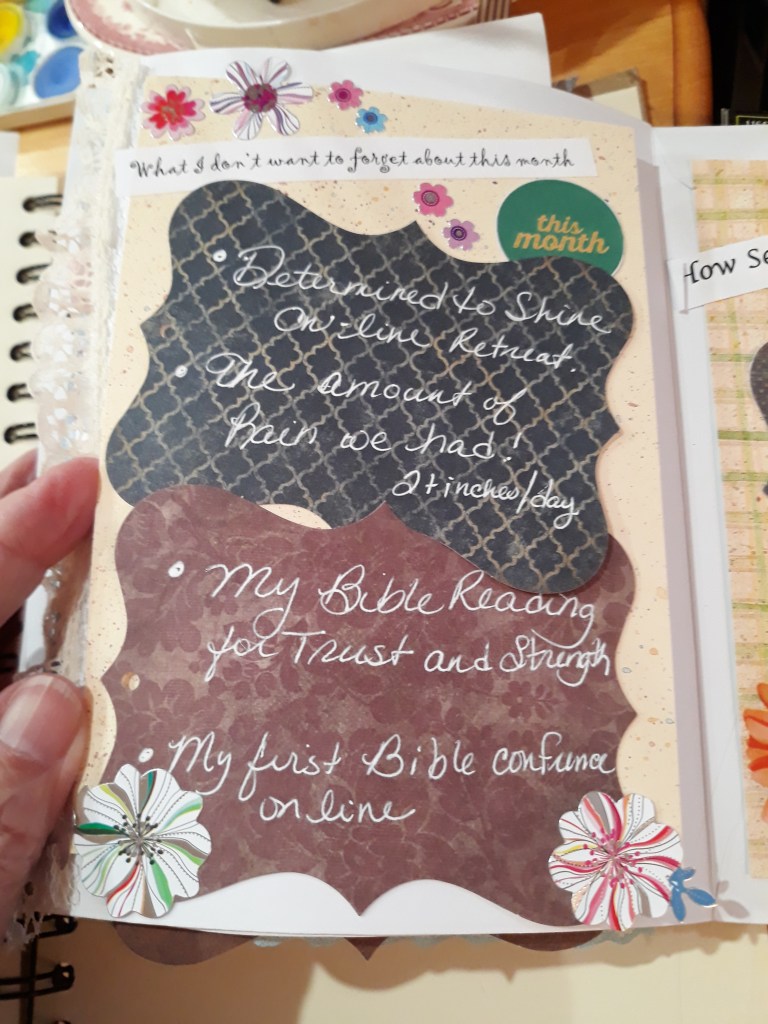 What I don't want to forget about this month
this
month
How Se
• Determined to Shine
On-line Retreat.
• The amount of
Rain we had!
2+inches/day
• My Bible Reading
for Trust and Strength
• My first Bible confrence
on line